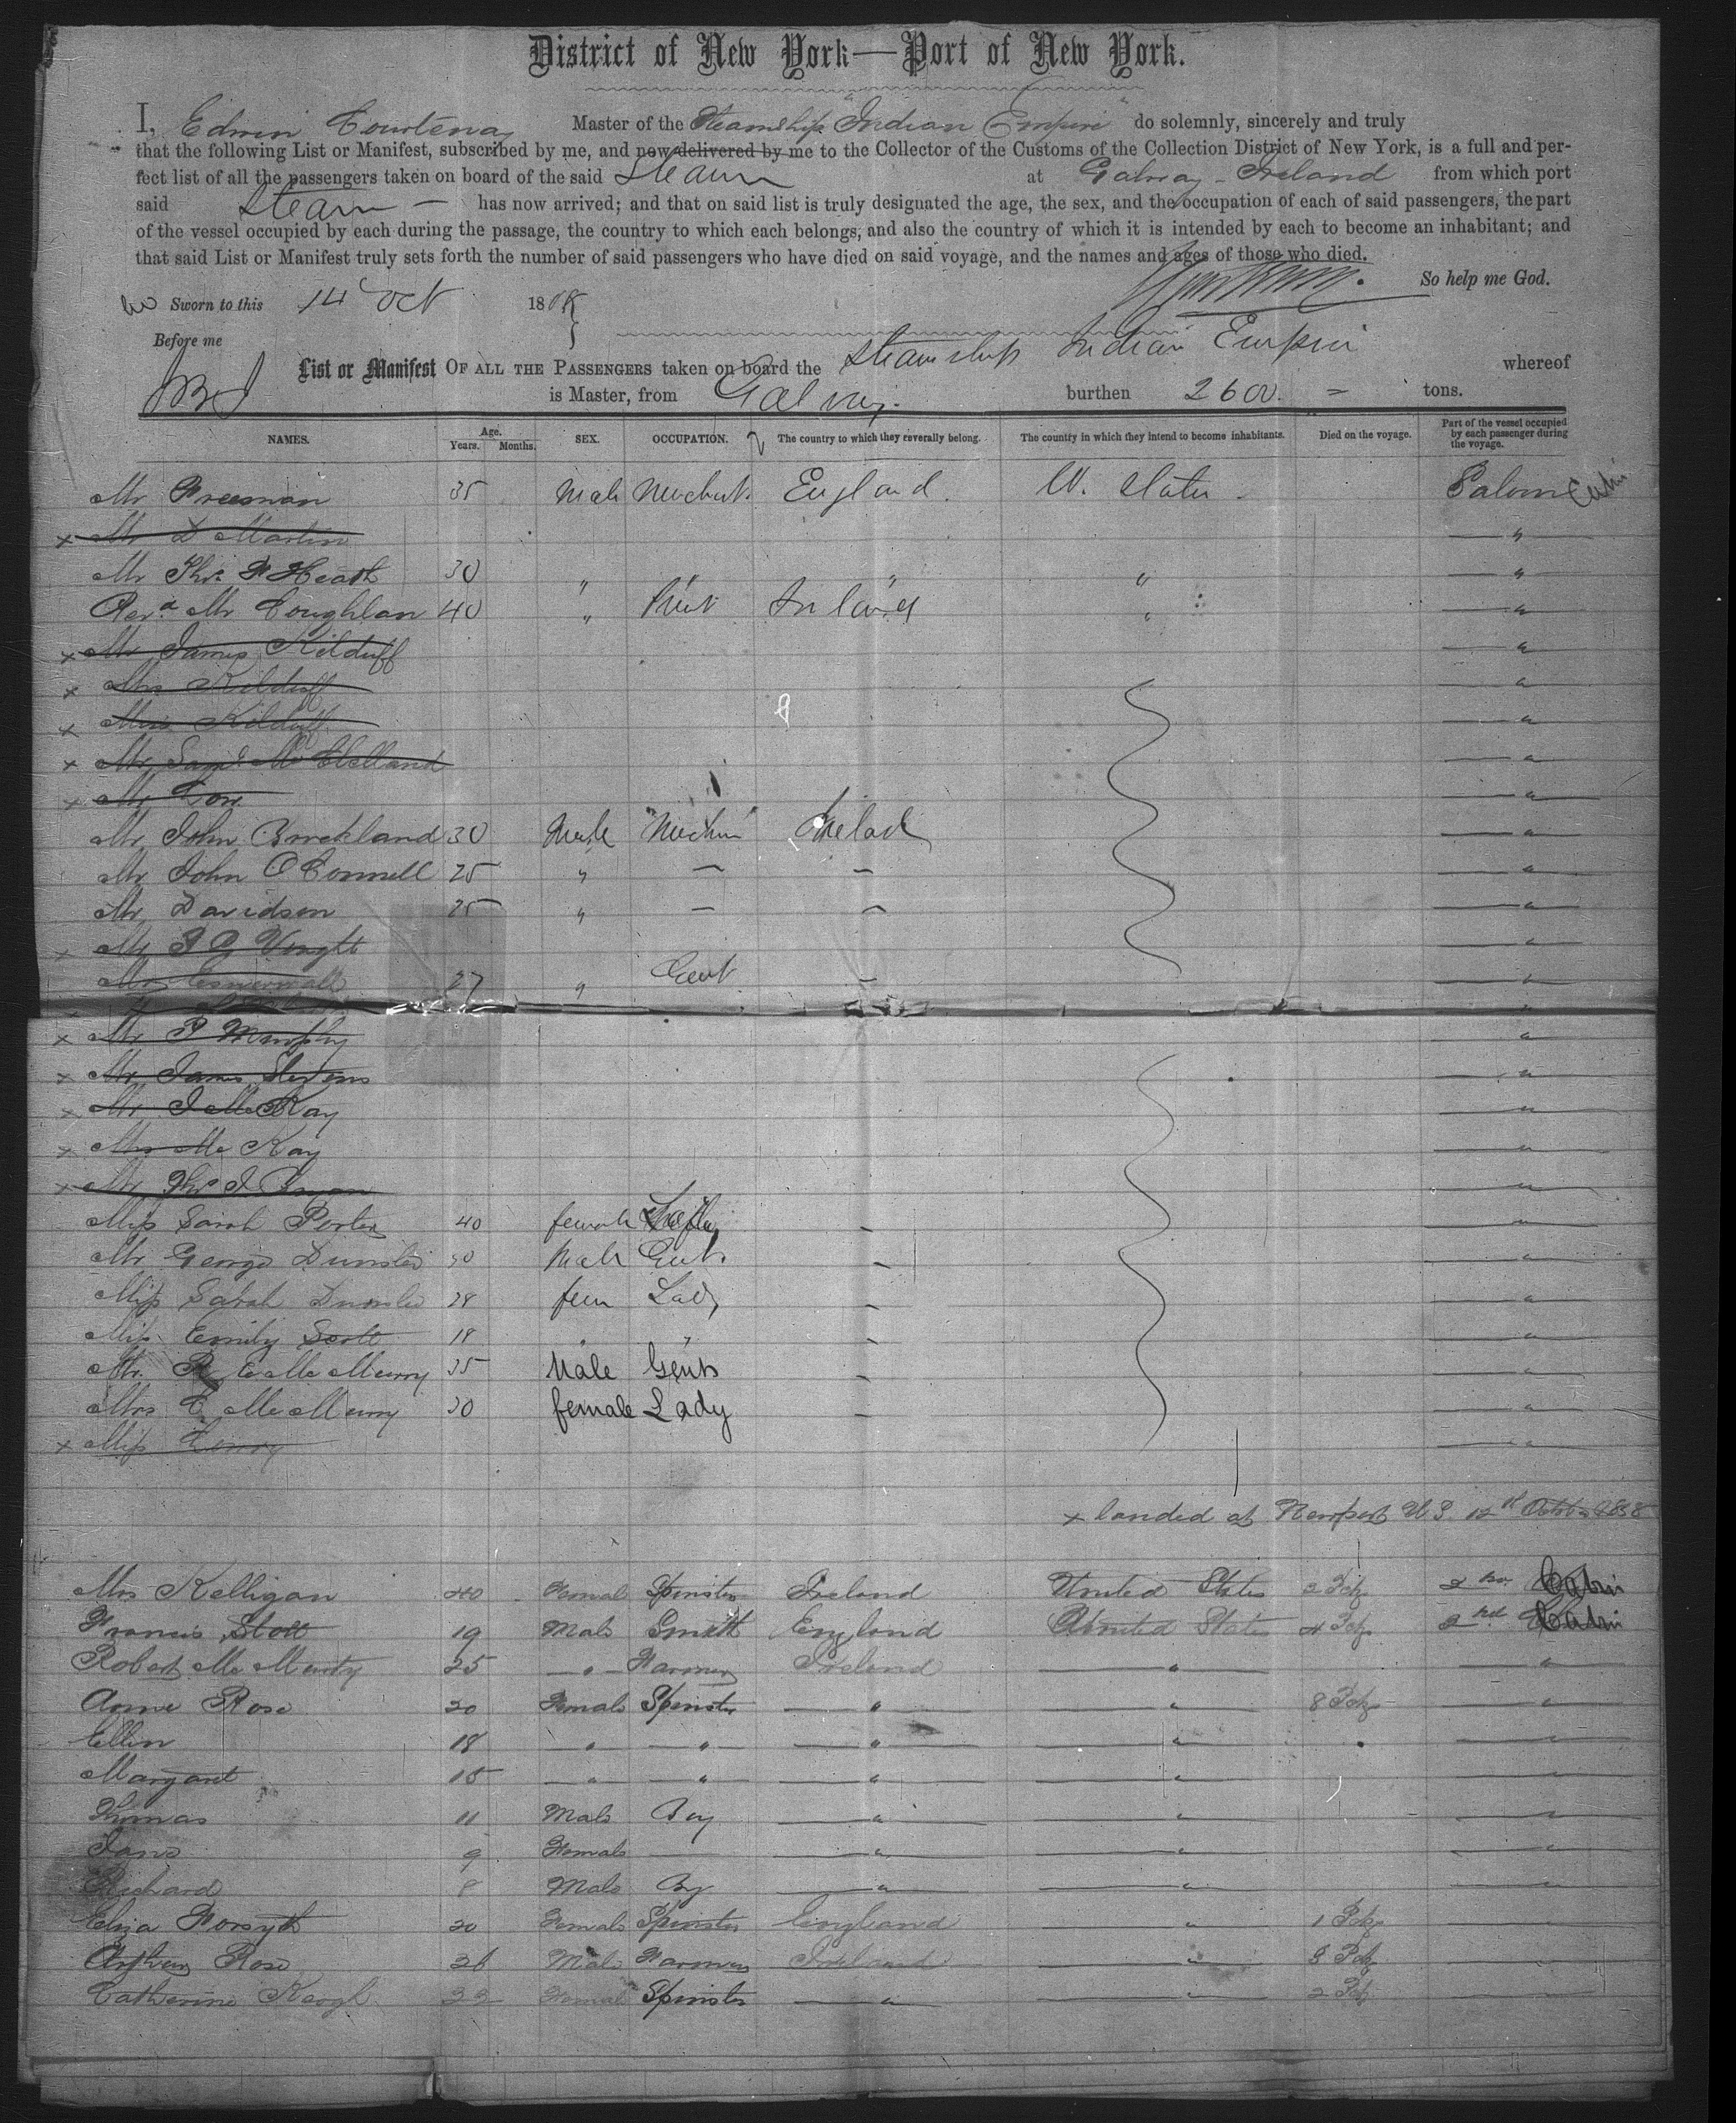 District of New York—Port of New York.
I, Edwin Courtenay Master of the Steamship "Indian Empire" do solemnly, sincerely and truly
that the following List or Manifest, subscribed by me, and now delivered by me to the Collector of the Customs of the Collection District of New York, is a full and per-
fect list of all the passengers taken on board of the said Steam at Galway - Ireland from which port
said Steam - has now arrived; and that on said list is truly designated the age, the sex, and the occupation of each of said passengers, the part
of the vessel occupied by each during the passage, the country to which each belongs, and also the country of which it is intended by each to become an inhabitant; and
that said List or Manifest truly sets forth the number of said passengers who have died on said voyage, and the names and ages of those who died.
So help me God.
Sworn to this 14 Oct 1858
Before me
List or Manifest OF ALL THE PASSENGERS taken on board the Steamship Indian Empire whereof
is Master, from Galway. burthen 2600. = tons.
NAMES. Age. Years. Months. SEX. OCCUPATION. The country to which they reverally belong. The country in which they intend to become inhabitants. Died on the voyage. Part of the vessel occupied by each passenger during the voyage.
Mr Freeman 35 Male Merchant. England. U. States - Saloon Cabin
x Mr D Martin "
Mr Thos. F Heath 30 " " " " "
Revd. Mr Coughlan 40 " Priest Ireland " "
x Mr James Kilduff "
x Mrs Kilduff "
x Miss Kilduff "
x Mr Saml. Mc Clelland "
x Mr "
Mr John Brickland 30 Male Ireland "
Mr John O'Connell 25 " — — "
Mr Davidson 25 " — — "
x Mr J G "
Mr 27 " Gent — "
x Mr P Murphy "
x Mr James Stevens "
x Mr J McKay "
x Mrs Mc Kay "
x Mr Thos J "
Miss Sarah Porter 40 female — "
Mr George Dunster 30 Male Gent. — "
Miss Sarah Dunster 28 fem Lady — "
Miss Emily Scott 18 " " — "
Mr. R E McMurry 35 Male Gents — "
Mrs E McMurry 30 female Lady — "
x Miss "
x landed at Newport U.S. 12th October 1858
Mrs Kelligan 40 Female Spinster Ireland United States 2 Pckg 2nd Cabin
Francis Stott 19 Male Smith England United States 4 Pckg 2nd Cabin
Robert Mc Murty 25 " Farmer Ireland " "
Anne Rose 20 Female Spinster " " 8 Pckg "
Ellen 18 " " " " "
Margaret 15 " " " " "
Thomas 11 Male Boy " " "
Jane 9 Female — " " "
Richard 8 Male Boy " " "
Eliza Forsyth 20 Female Spinster England " 1 Pckg "
Rose 26 Male Farmer Ireland " 8 Pckg "
Catherine Keogh Female Spinster " " 2 Pckg "